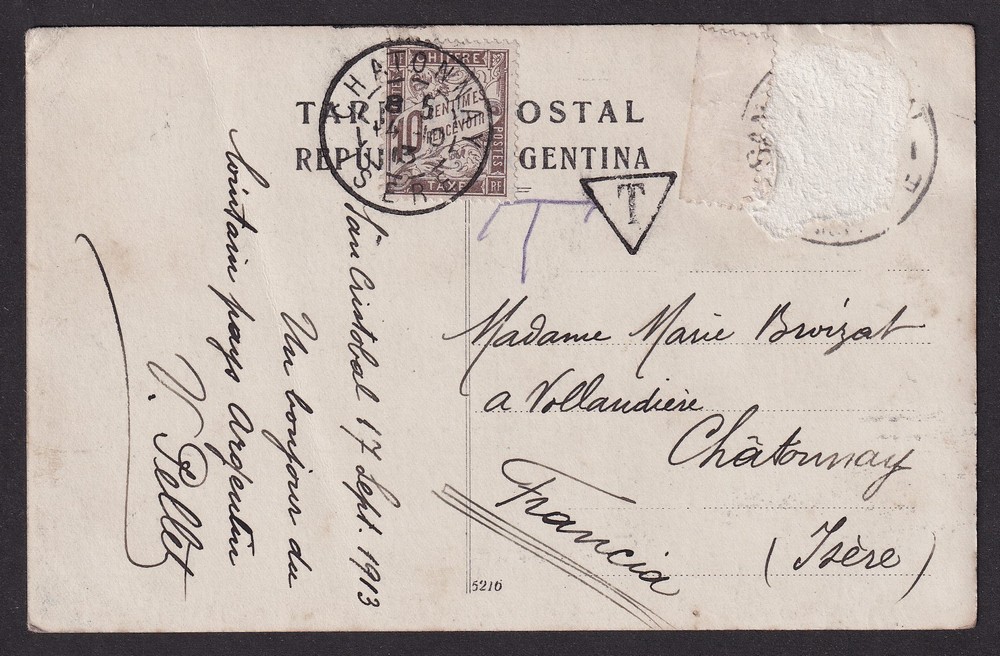 TAR OSTAL
REPU GENTINA
CHATONNAY
ISERE
CHIFFRE
10
CENTIMES
PERCEVOIR
POSTES
TAXE
RF
T
T
San Cristobal 17 Sept. 1913
Un bonjour du
lointain pays Argentin
V. Pellet
Madame Marie Broizat
a Vollandière
Châtonnay
(Isère)
Francia
5216